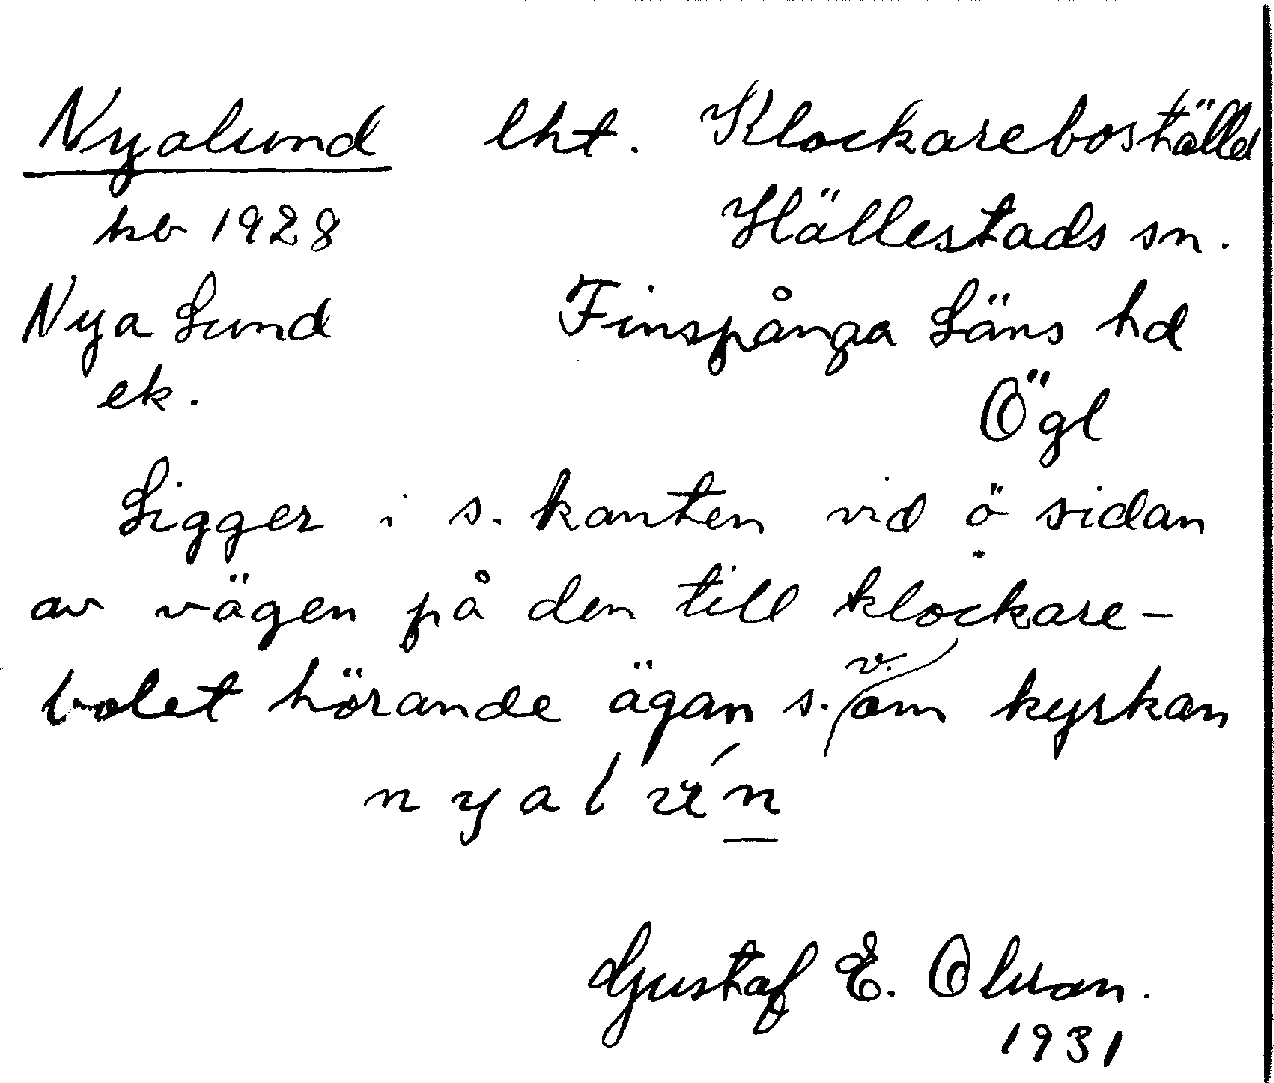 Nyalund lht. Klockarebostället
hb 1928 Hällestads sn.
Nya Lund Finspånga Läns hd
ek. Ögl
Ligger i s. kanten vid ö sidan
av vägen på den till klockare-
bolet hörande ägan s. v. om kyrkan
nyal n
Gustaf E. Olsson.
1931